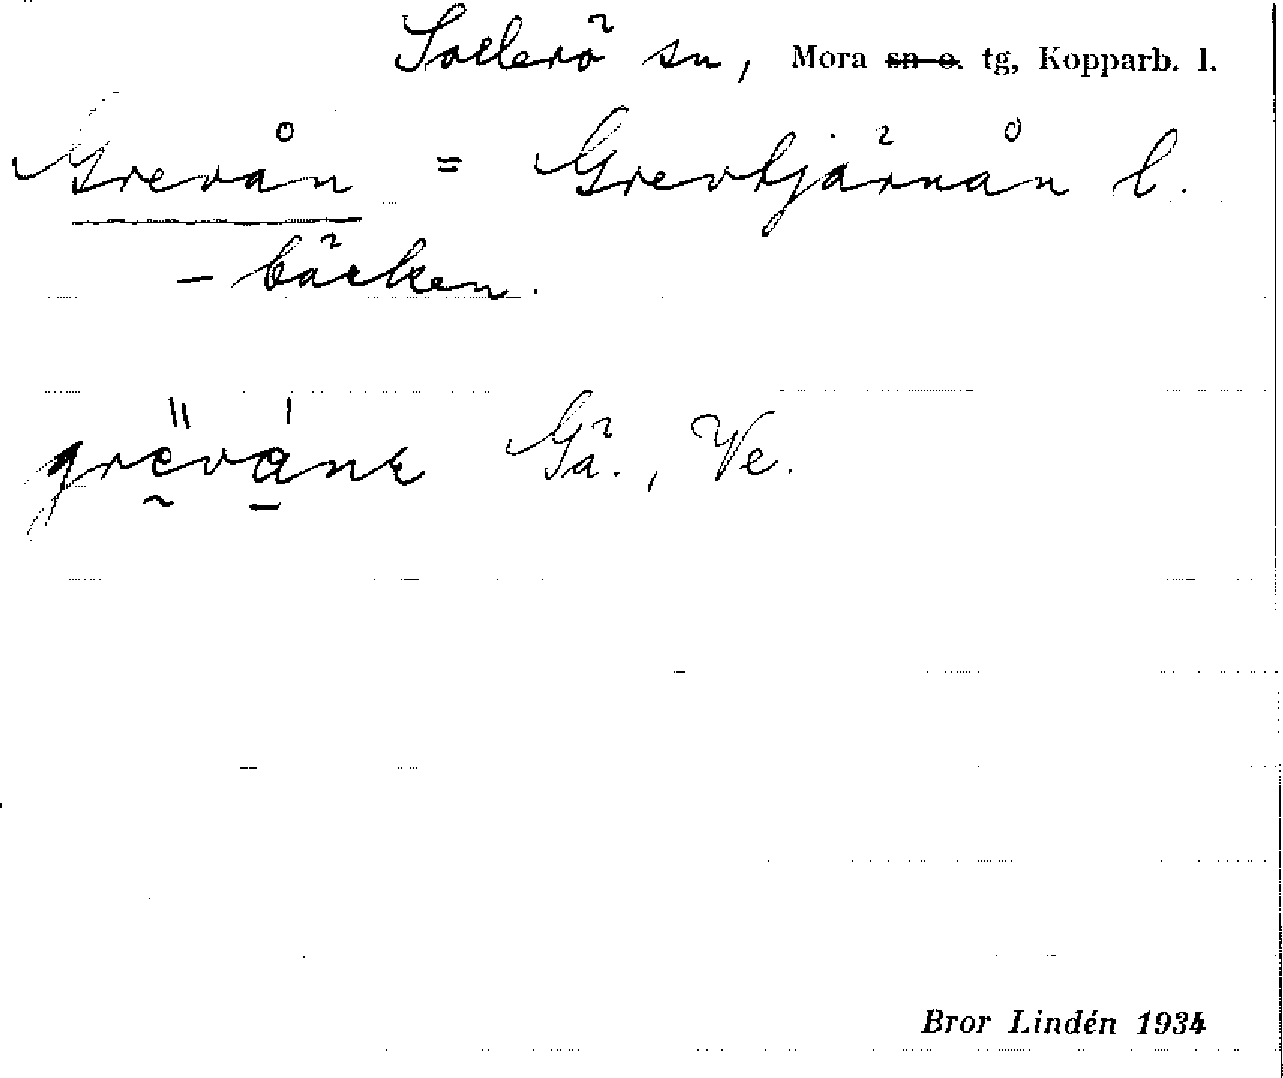 Sollerö sn, Mora sn o. tg, Kopparb. l.
Grevån = Grevtjärnån l.
- bäcken.
grèvánɛ Gä., Ve.
Bror Lindén 1934